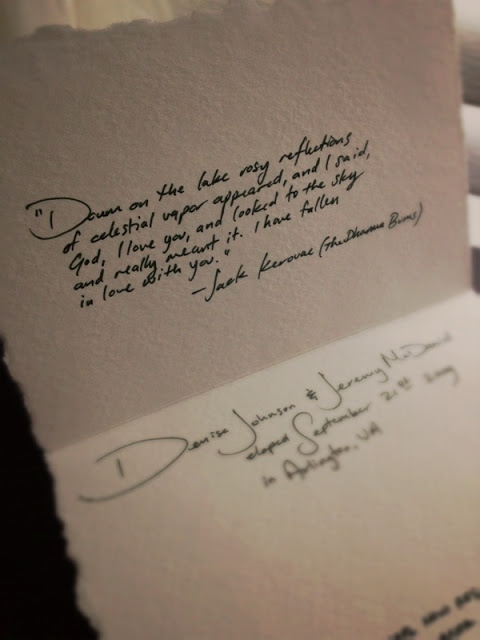 "Down on the lake rosy reflections
of celestial vapor appeared, and I said,
God, I love you, and looked to the sky
and really meant it. I have fallen
in love with you."
—Jack Kerouac (The Dharma Bums)
Denise Johnson & Jeremy McDavid
eloped September 21st 2009
in Arlington, VA